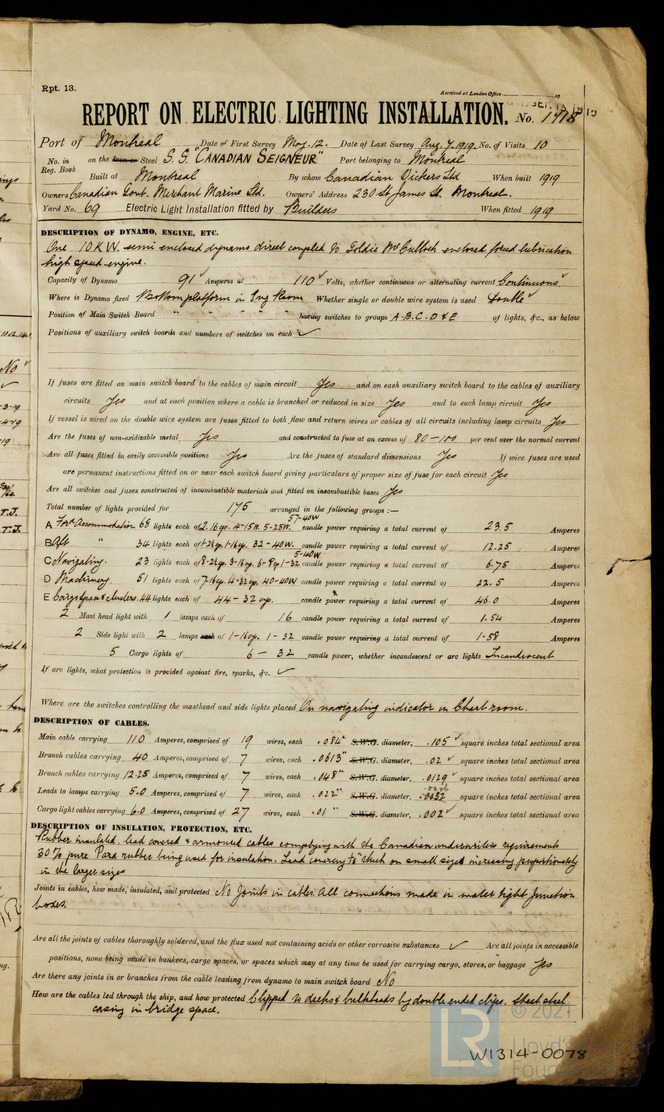 Rpt. 13.
Received at London Office
REPORT ON ELECTRIC LIGHTING INSTALLATION. No.
Port of Montreal Date of First Survey May. 12. Date of Last Survey Aug. 7. 1919. No. of Visits 10
No. in Reg. Book on the Iron or Steel S.S. "CANADIAN SEIGNEUR" Port belonging to Montreal
Built at Montreal By whom Canadian Vickers Ltd When built 1919
Owners Canadian Govt. Merchant Marine Ltd. Owners' Address 230 St. James St. Montreal.
Yard No. 69 Electric Light Installation fitted by Builders When fitted 1919
DESCRIPTION OF DYNAMO, ENGINE, ETC.
One 10 K.W. semi enclosed dynamo direct coupled to Goldie McCulloch enclosed forced lubrication
high speed engine.
Capacity of Dynamo 91 Amperes at 110 Volts, whether continuous or alternating current Continuous.
Where is Dynamo fixed Bottom platform in Eng Room Whether single or double wire system is used double
Position of Main Switch Board " " " " " having switches to groups A.B.C.D & E of lights, &c., as below
Positions of auxiliary switch boards and numbers of switches on each ✓
If fuses are fitted on main switch board to the cables of main circuit Yes and on each auxiliary switch board to the cables of auxiliary
circuits Yes and at each position where a cable is branched or reduced in size Yes and to each lamp circuit Yes
If vessel is wired on the double wire system are fuses fitted to both flow and return wires or cables of all circuits including lamp circuits Yes
Are the fuses of non-oxidizable metal Yes and constructed to fuse at an excess of 80-100 per cent over the normal current
Are all fuses fitted in easily accessible positions Yes Are the fuses of standard dimensions Yes If wire fuses are used
are permanent instructions fitted on or near each switch board giving particulars of proper size of fuse for each circuit Yes
Are all switches and fuses constructed of incombustible materials and fitted on incombustible bases Yes
Total number of lights provided for 175 arranged in the following groups :—
57-40W
A For'd Accommodation 68 lights each of 2.16cp. 4-15W. 5-25W. candle power requiring a total current of 23.5 Amperes
B Aft " 34 lights each of 1-2cp. 1-16cp. 32-40W. candle power requiring a total current of 12.25 Amperes
5-40W
C Navigating. 23 lights each of 8-2cp. 3-16cp. 1-32 candle power requiring a total current of 6.75 Amperes
D Machinery 51 lights each of 7-16cp. 4-32cp. 40-40W candle power requiring a total current of 22.5 Amperes
E Cargo space & clusters. 44 lights each of 44-32 cp. candle power requiring a total current of 46.0 Amperes
2 Mast head light with 1 lamps each of 16 candle power requiring a total current of 1.54 Amperes
2 Side light with 2 lamps each of 1-16cp. 1-32 candle power requiring a total current of 1.58 Amperes
5 Cargo lights of 6-32 candle power, whether incandescent or arc lights Incandescent
If arc lights, what protection is provided against fire, sparks, &c. ✓
Where are the switches controlling the masthead and side lights placed On navigating indicator in Chart room.
DESCRIPTION OF CABLES.
Main cable carrying 110 Amperes, comprised of 19 wires, each .084" S.W.G. diameter, .105 square inches total sectional area
Branch cables carrying 40 Amperes, comprised of 7 wires, each .0613" S.W.G. diameter, .02 square inches total sectional area
Branch cables carrying 12.25 Amperes, comprised of 7 wires, each .048" S.W.G. diameter, .0129 square inches total sectional area
Leads to lamps carrying 5.0 Amperes, comprised of 7 wires, each .022" S.W.G. diameter, .0032 square inches total sectional area
Cargo light cables carrying 6.0 Amperes, comprised of 27 wires, each .01" S.W.G. diameter, .002 square inches total sectional area
DESCRIPTION OF INSULATION, PROTECTION, ETC.
Rubber insulated, lead covered & armoured cables complying with the Canadian underwriters requirements
30% pure Para rubber being used for insulation. Lead covering thick on small sizes increasing proportionately
in the larger sizes
Joints in cables, how made, insulated, and protected No Joints in cables. All connections made in water tight junction
boxes.
Are all the joints of cables thoroughly soldered, and the flux used not containing acids or other corrosive substances ✓ Are all joints in accessible
positions, none being made in bunkers, cargo spaces, or spaces which may at any time be used for carrying cargo, stores, or baggage Yes
Are there any joints in or branches from the cable leading from dynamo to main switch board No
How are the cables led through the ship, and how protected Clipped to decks & bulkheads by double ended clips. Sheet steel
casing in bridge space.
© 2021
LR
Lloyd's Register
Foundation
W1314-0078